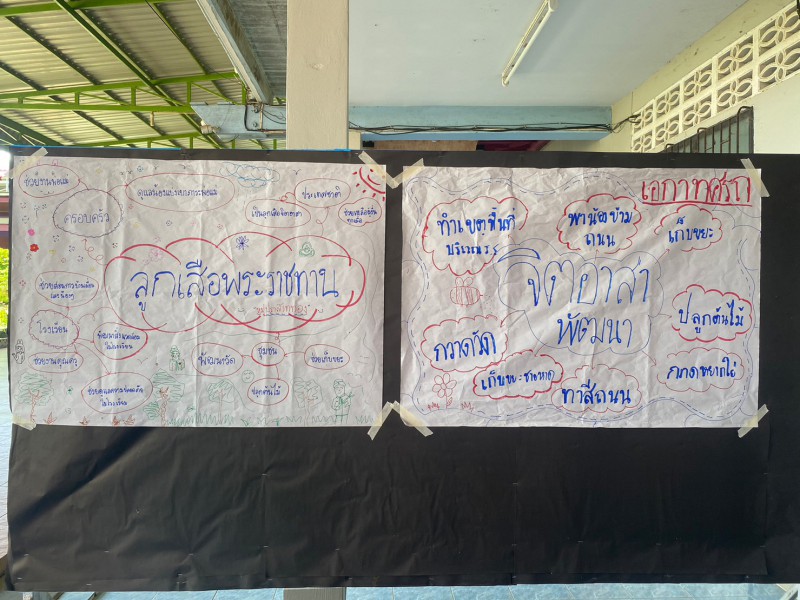 ช่วยงานพ่อแม่
ครอบครัว
ดูแลน้องแบ่งเบาภาระพ่อแม่
ประเทศชาติ
ลูกเสือพระราชทาน
โรงเรียน
ช่วยงานคุณครู
พัฒนาวัด
ชุมชน
ช่วยเก็บขยะ
ปลูกต้นไม้
เอกาทศรถ
ทำเขตพื้นที่
บริเวณ ร.ร
พาน้องข้าม
ถนน
เก็บขยะ
จิตอาสา
พัฒนา
ปลูกต้นไม้
กวาดวัด
เก็บขยะชายหาด
ทาสีถนน
กวาดหยากไย่